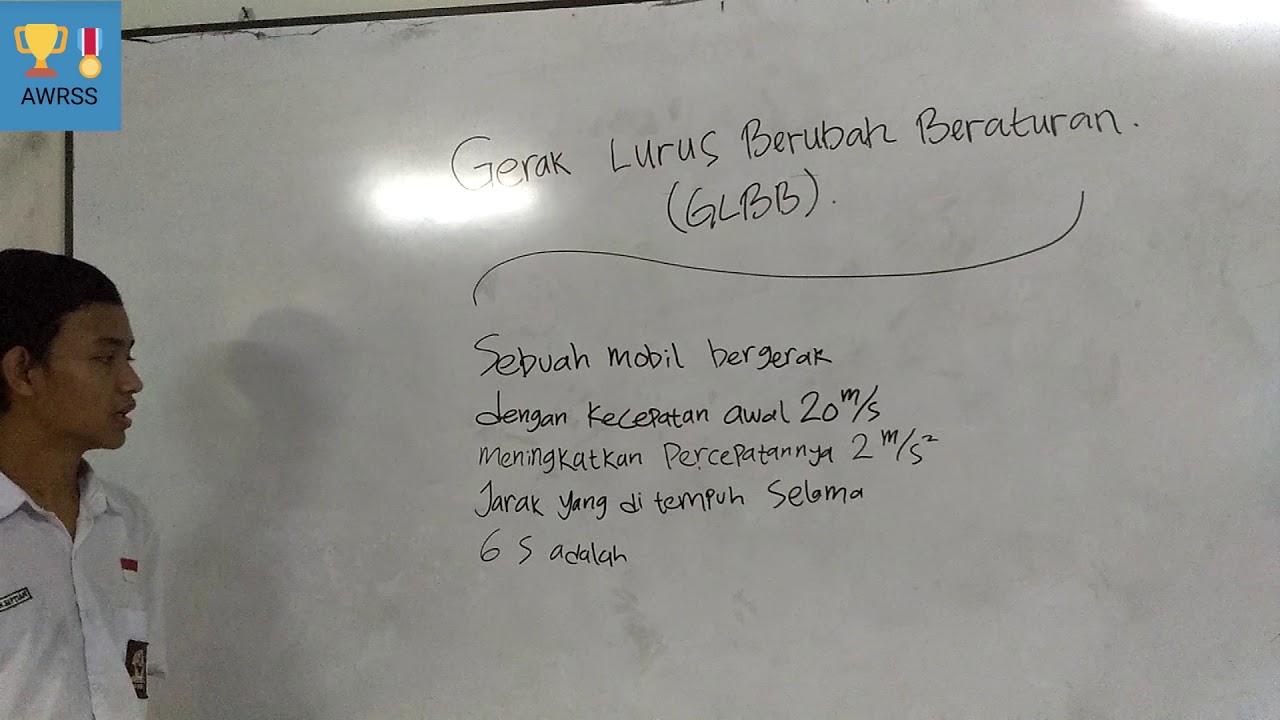 AWRSS
Gerak Lurus Berubah Beraturan.
(GLBB).
Sebuah mobil bergerak
dengan Kecepatan awal 20 m/s
meningkatkan Percepatannya 2 m/s²
Jarak yang di tempuh Selama
6 S adalah